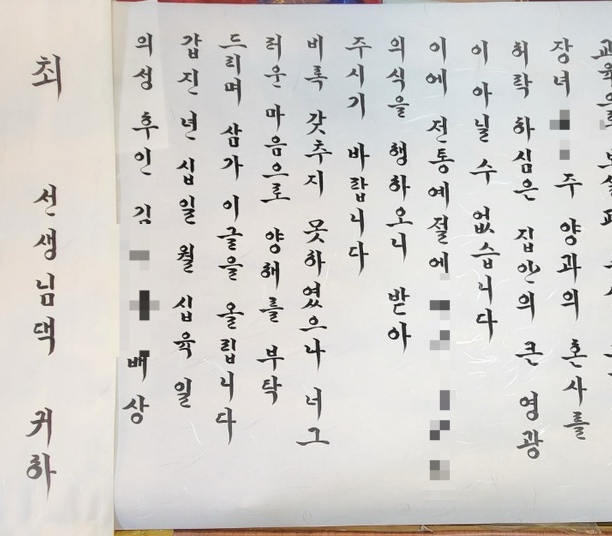 장녀 주 양과의 혼사를
허락 하심은 집안의 큰 영광
이 아닐 수 없습니다
이에 전통예절에
의식을 행하오니 받아
주시기 바랍니다
비록 갖추지 못하였으나 너그
러운 마음으로 양해를 부탁
드리며 삼가 이글을 올립니다
갑진년 십일월 십육일
의성 후인 김 배상
최 선생님댁 귀하